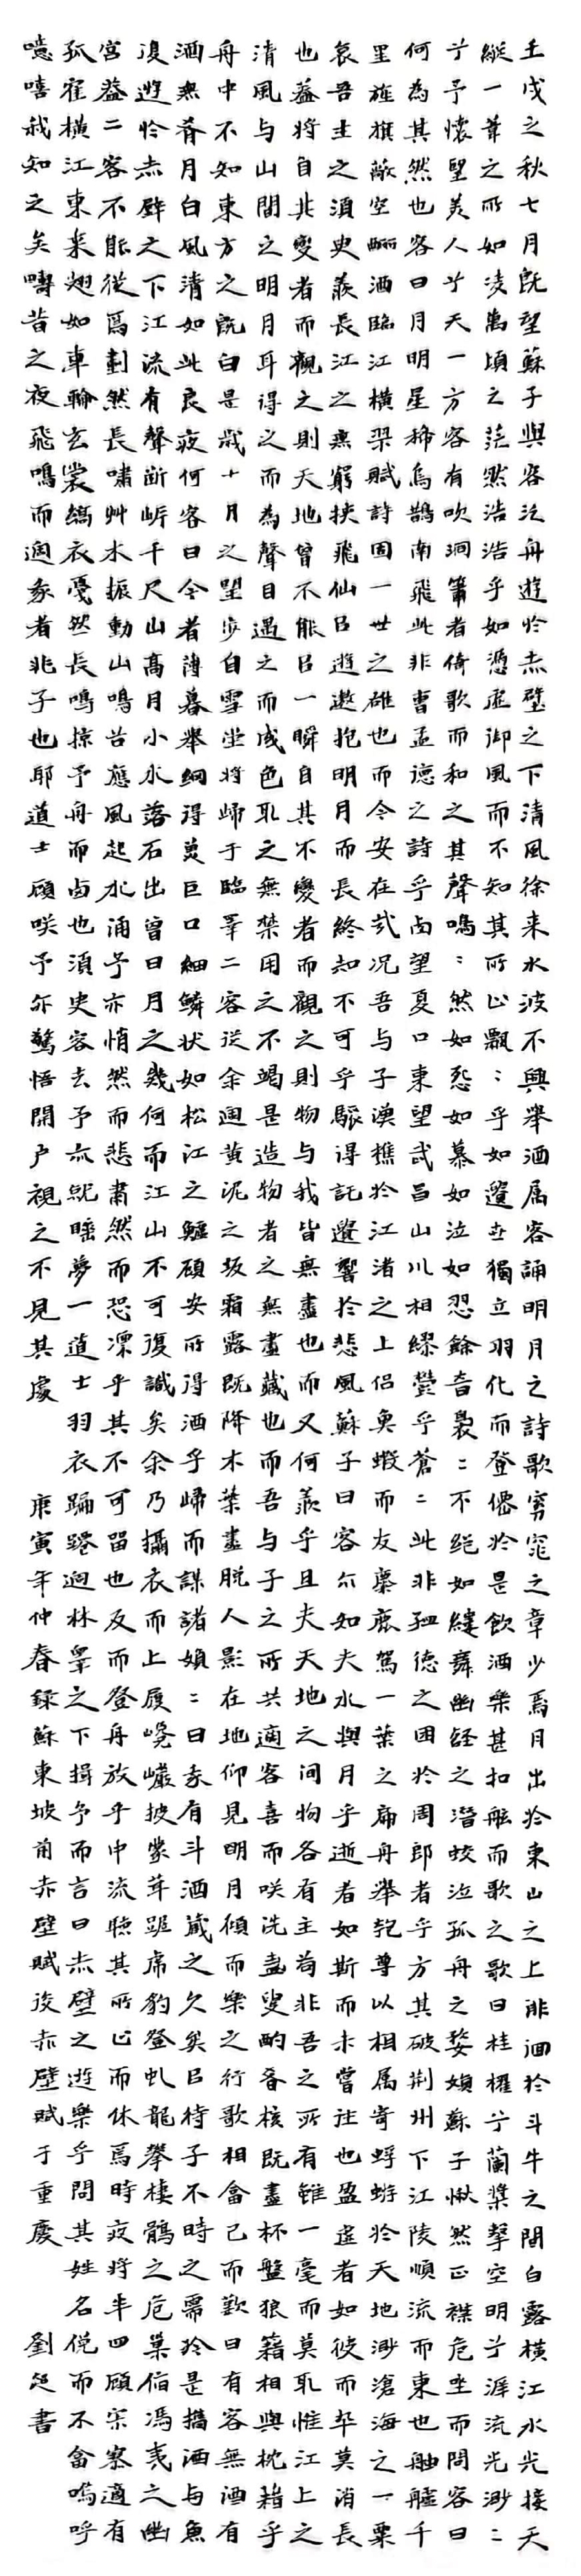 壬戌之秋七月既望蘇子與客泛舟遊於赤壁之下清風徐来水波不興舉酒属客誦明月之詩歌窈窕之章少焉月出於東山之上徘徊於斗牛之間白露横江水光接天
縱一葦之所如凌萬頃之茫然浩浩乎如憑虚御風而不知其所止飄:乎如遺世獨立羽化而登僊於是飲酒樂甚扣舷而歌之歌曰桂櫂兮蘭槳擊空明兮泝流光渺:
兮予懷望美人兮天一方客有吹洞簫者倚歌而和之其聲嗚:然如怨如慕如泣如愬餘音裊:不絕如縷舞幽壑之潛蛟泣孤舟之嫠婦蘇子愀然正襟危坐而問客曰
何為其然也客曰月明星稀烏鵲南飛此非曹孟德之詩乎西望夏口東望武昌山川相繆鬱乎蒼:此非孟德之困於周郎者乎方其破荆州下江陵順流而東也舳艫千
里旌旗蔽空酾酒臨江横槊賦詩固一世之雄也而今安在哉况吾与子漁樵於江渚之上侶魚蝦而友麋鹿駕一葉之扁舟舉匏尊以相属寄蜉蝣於天地渺滄海之一粟
哀吾生之須臾羨長江之無窮挟飛仙㠯遊遨抱明月而長終知不可乎驟得託遺響於悲風蘇子曰客亦知夫水與月乎逝者如斯而未嘗往也盈虚者如彼而卒莫消長
也蓋將自其變者而觀之則天地曾不能㠯一瞬自其不變者而觀之則物与我皆無盡也而又何羨乎且夫天地之间物各有主苟非吾之所有雖一毫而莫取惟江上之
清風与山間之明月耳得之而為聲目遇之而成色取之無禁用之不竭是造物者之無盡藏也而吾与子之所共適客喜而咲洗盏更酌肴核既盡杯盤狼籍相與枕藉乎
舟中不知東方之既白是歲十月之望步自雪堂將歸于臨皋二客從余過黄泥之坂霜露既降木葉盡脱人影在地仰見明月傾而樂之行歌相答已而歎曰有客無酒有
酒無肴月白風清如此良夜何客曰今者薄暮舉網得魚巨口細鳞状如松江之鱸顧安所得酒乎歸而謀諸婦:曰我有斗酒藏之久矣㠯待子不時之需於是攜酒与魚
復遊於赤壁之下江流有聲断岸千尺山高月小水落石出曾日月之幾何而江山不可復識矣余乃攝衣而上履巉巖披蒙茸踞虎豹登虬龍攀棲鶻之危巢俯馮夷之幽
宮蓋二客不能從焉劃然長嘯艸木振動山鳴谷應風起水涌予亦悄然而悲肅然而恐凛乎其不可留也反而登舟放乎中流聽其所止而休焉時夜將半四顧寂寥適有
孤隺横江東来翅如車輪玄裳縞衣戛然長鳴掠予舟而西也須臾客去予亦就睡夢一道士羽衣蹁躚過林皋之下揖予而言曰赤壁之遊樂乎問其姓名俛而不答嗚呼
噫嘻我知之矣疇昔之夜飛鳴而過我者非子也耶道士顧咲予亦驚悟開户視之不見其處 庚寅年仲春録蘇東坡前赤壁賦後赤壁賦于重慶 劉 書